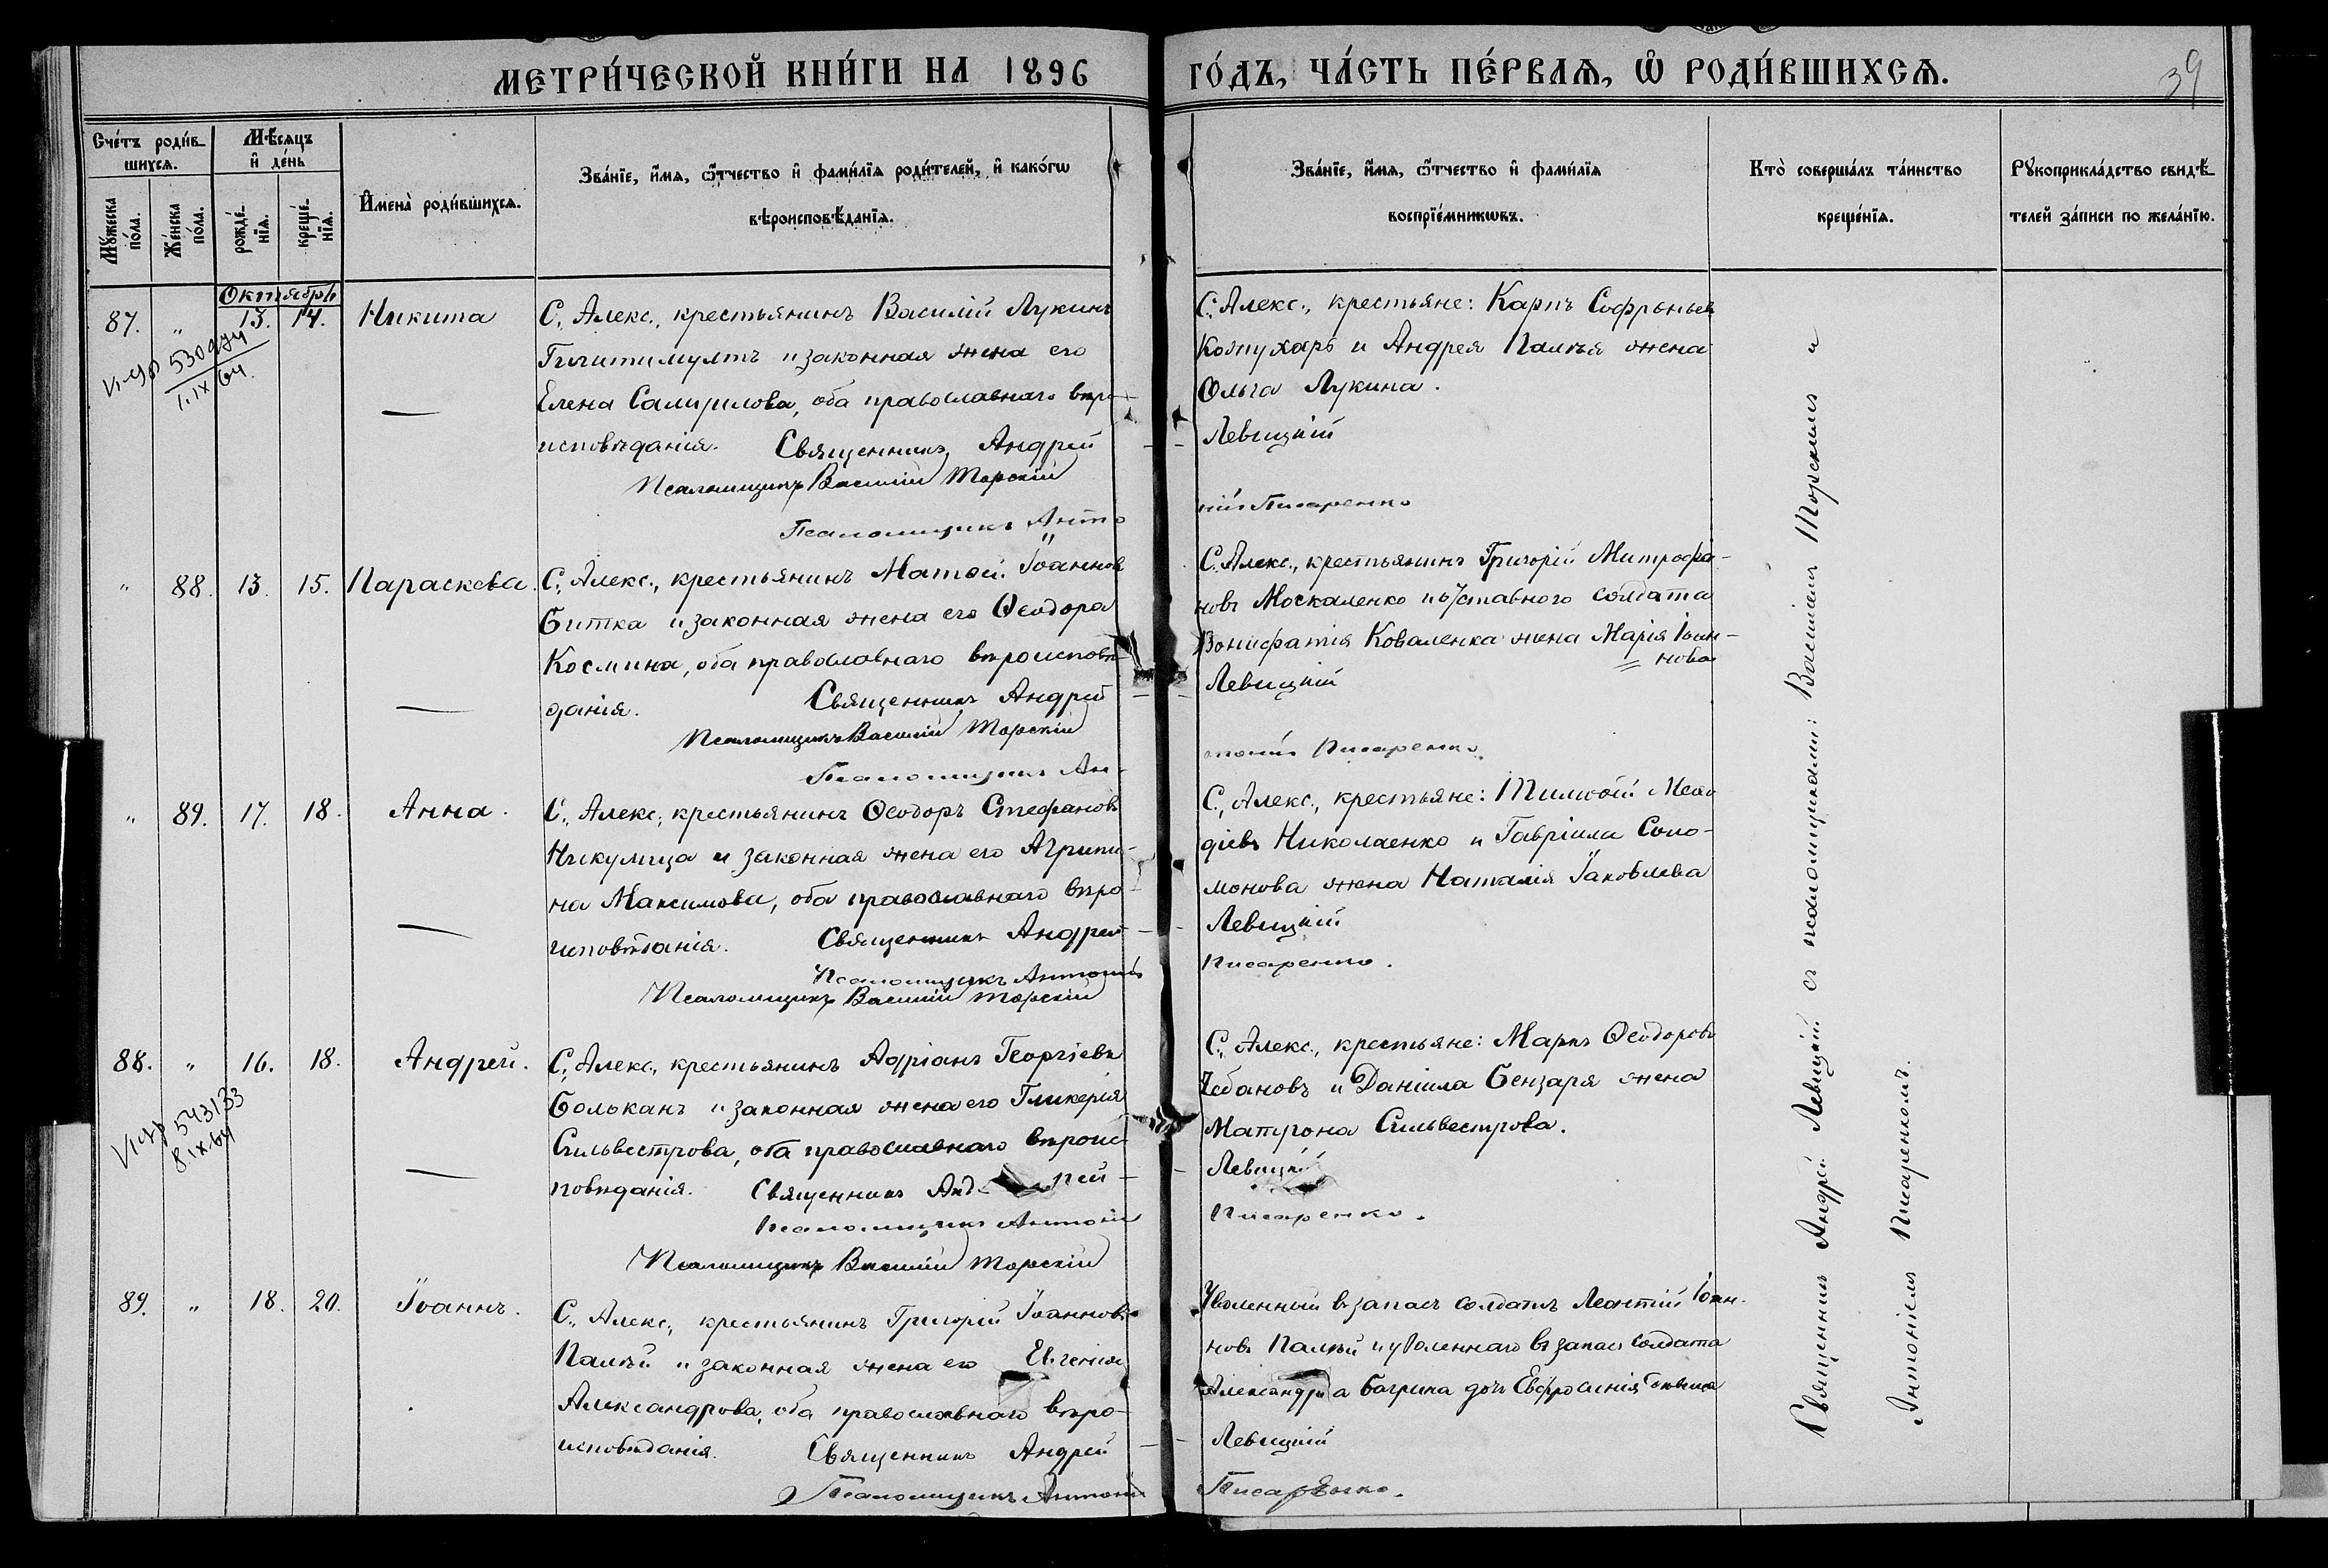 МЕТРИ́ЧЕСКОЙ КНИ́ГИ НА 1896 ГО́ДЪ, ЧА́СТЬ ПЕ́РВАѦ, Ѡ҆ РОДИ́ВШИХСѦ.
39
Сче́тъ роди́в-
шихсѧ.
Мѣ́сѧцъ
и҆ де́нь
Мꙋ́жеска
по́ла.
Же́нска
по́ла.
рожде́-
нїѧ.
креще́-
нїѧ.
И҆мена̀ роди́вшихсѧ.
Зва́нїе, и҆́мѧ, ѻ҆́тчество и҆ фами́лїѧ роди́телей, и҆ како́гѡ
вѣроисповѣ́данїѧ.
Зва́нїе, и҆́мѧ, ѻ҆́тчество и҆ фами́лїѧ
воспрїе́мникѡвъ.
Кто̀ соверша́лъ та́инство
креще́нїѧ.
Рꙋкоприкла́дство свидѣ́-
телей за́писи по жела́нїю.
Октябрь
87. „ 13. 14. Никита
С. Алекс., крестьянинъ Василій Лукинъ
и законная жена его
Елена Самуилова, оба православнаго вѣро-
исповѣданія. Священникъ Андрей
Псаломщикъ Василій Торскій
Псаломщикъ Анто
С. Алекс., крестьяне: Карпъ Софроньевъ
Кожухарь и Андрея Палѣя жена
Ольга Лукина.
Левицкій
ній Писаренко
530974
1.IX 64.
„ 88. 13. 15. Параскева.
С. Алекс., крестьянинъ Матѳей Іоанновъ
Битка и законная жена его Ѳеодора
Космина, оба православнаго вѣроисповѣ-
данія. Священникъ Андрей
Псаломщикъ Василій Торскій
Псаломщикъ Ан-
С. Алекс., крестьянинъ Григорій Митрофа-
новъ Москаленко и отставного солдата
Вонифатія Коваленка жена Марія Іоан-
нова
Левицкій
тоній Писаренко.
„ 89. 17. 18. Анна.
С. Алекс., крестьянинъ Ѳеодоръ Стефановъ
Никулица и законная жена его Агрипи-
на Максимова, оба православнаго вѣро-
исповѣданія. Священникъ Андрей
Псаломщикъ Антоній
Псаломщикъ Василій Торскій
С. Алекс., крестьяне: Тимоѳей Меѳо
діевъ Николаенко и Гавріила Соло-
монова жена Наталія Іаковлева
Левицкій
Писаренко.
88. „ 16. 18. Андрей.
С. Алекс., крестьянинъ Адріанъ Георгіевъ
Больканъ и законная жена его Гликерія
Сильвестрова, оба православнаго вѣроис-
повѣданія. Священникъ Андрей
Псаломщикъ Антоній
Псаломщикъ Василій Торскій
С. Алекс., крестьяне: Маркъ Ѳеодоровъ
Чебановъ и Даніила Бензаря жена
Матрона Сильвестрова.
Левицкій
Писаренко.
543133
8.IX.64
89. „ 18. 20. Іоаннъ.
С. Алекс., крестьянинъ Григорій Іоанновъ
Палѣй и законная жена его Евгенія
Александрова, оба православнаго вѣро-
исповѣданія. Священникъ Андрей
Псаломщикъ Антоній
Уволенный въ запасъ солдатъ Леонтій Іоан-
новъ Палѣй и уволеннаго въ запасъ солдата
Александра Багрина дочь Евфросинія
Левицкій
Писаренко.
Священникъ Андрей Левицкій съ псаломщиками: Василіемъ Торскимъ и
Антоніемъ Писаренкомъ.